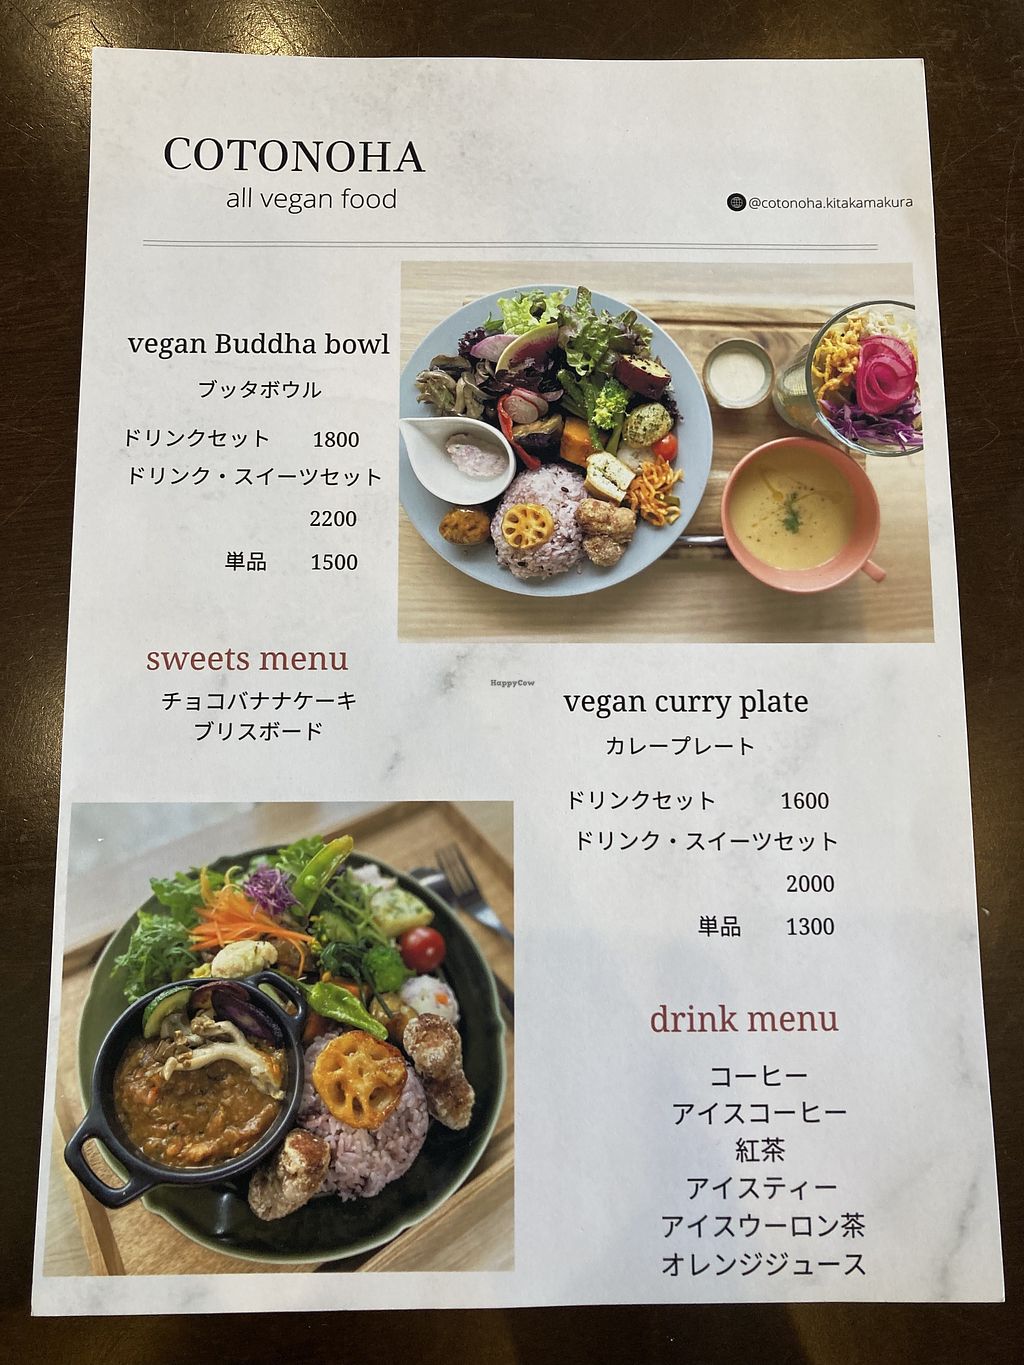 COTONOHA
all vegan food
@cotonoha.kitakamakura
vegan Buddha bowl
ブッタボウル
ドリンクセット 1800
ドリンク・スイーツセット
2200
単品 1500
sweets menu
チョコバナナケーキ
ブリスボード
HappyCow
vegan curry plate
カレープレート
ドリンクセット 1600
ドリンク・スイーツセット
2000
単品 1300
drink menu
コーヒー
アイスコーヒー
紅茶
アイスティー
アイスウーロン茶
オレンジジュース